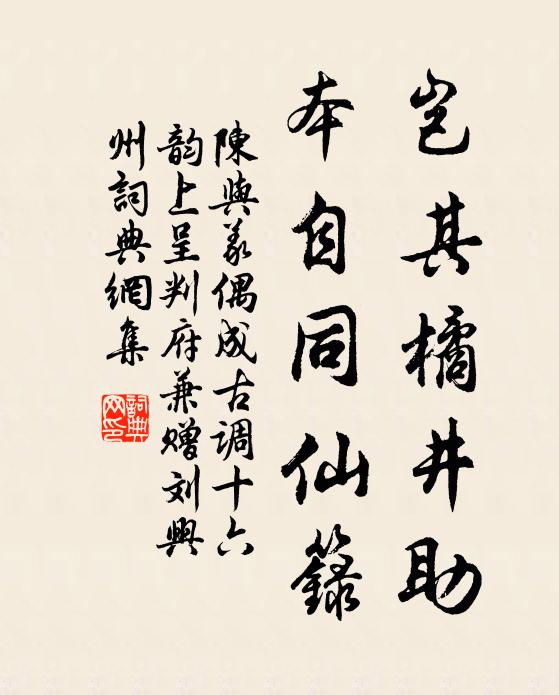 岂其橘井助
本自同仙籙
陳與義偶成古調十六
韵上呈判府兼贈刘興
州詞典網集
詞典网印